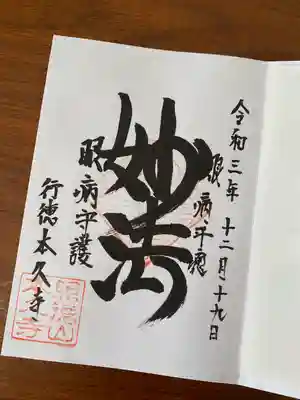 令和三年十二月十九日
眼病平癒
妙法
眼病守護
行徳本久寺